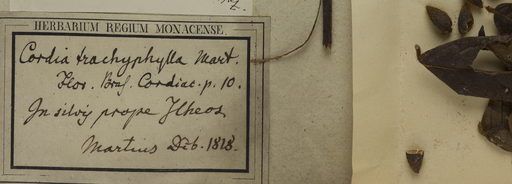 HERBARIUM REGIUM MONACENSE.
Cordia trachyphylla Mart.
Flor. Bras. Cordiac. p. 10.
In silvis prope Ilheos
Martius Dec. 1818.